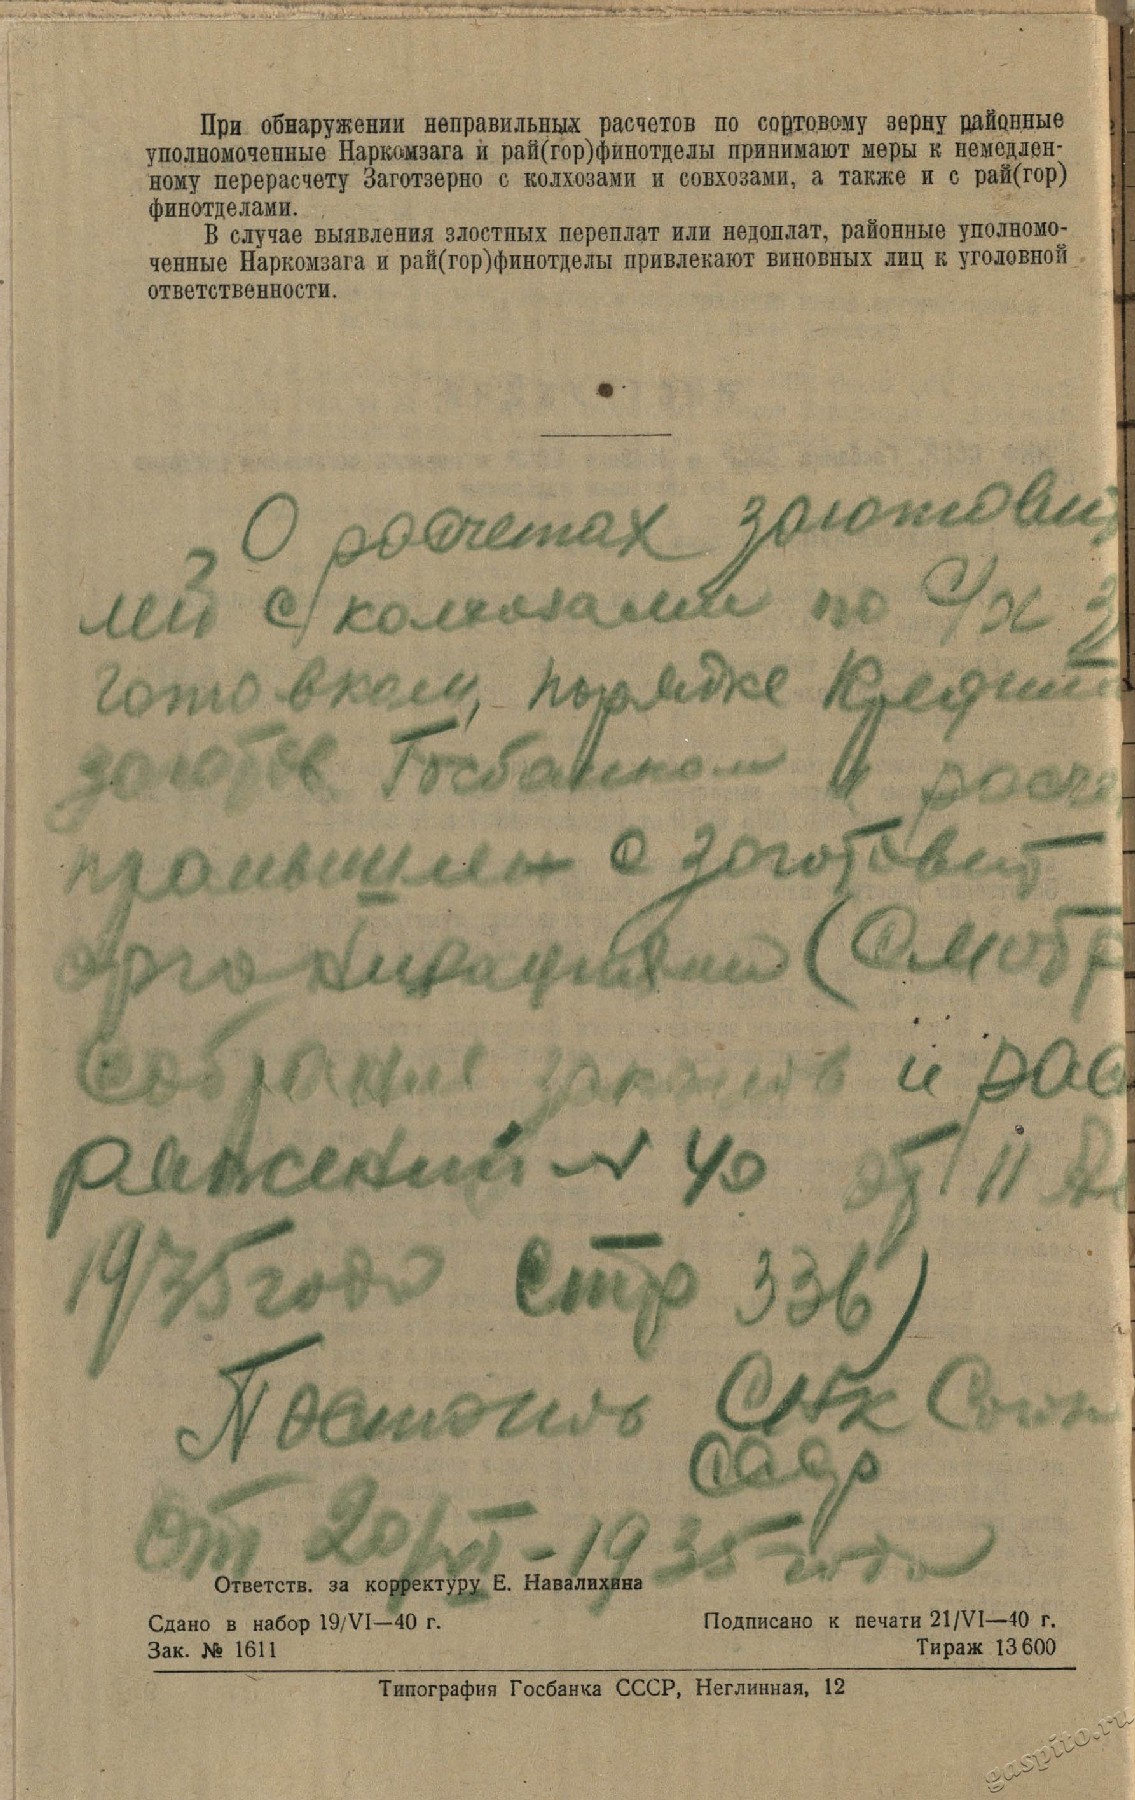 При обнаружении неправильных расчетов по сортовому зерну районные
уполномоченные Наркомзага и рай(гор)финотделы принимают меры к немедлен-
ному перерасчету Заготзерно с колхозами и совхозами, а также и с рай(гор)
финотделами.
В случае выявления злостных переплат или недоплат, районные уполномо-
ченные Наркомзага и рай(гор)финотделы привлекают виновных лиц к уголовной
ответственности.
О расчетах заготовит
лей с колхозами по с/х з
готовкам, порядке кредит
заготов Госбанком и расче
промышлен с заготовит
организациями (Смотр
Собрание законов и рас
ряжений № 40 от 11
1935 года стр 336)
Постановль СНК Союза
ССР
от 20/VII-1935 года
Ответств. за корректуру Е. Навалихина
Сдано в набор 19/VI—40 г. Подписано к печати 21/VI—40 г.
Зак. № 1611 Тираж 13 600
Типография Госбанка СССР, Неглинная, 12
gaspito.ru